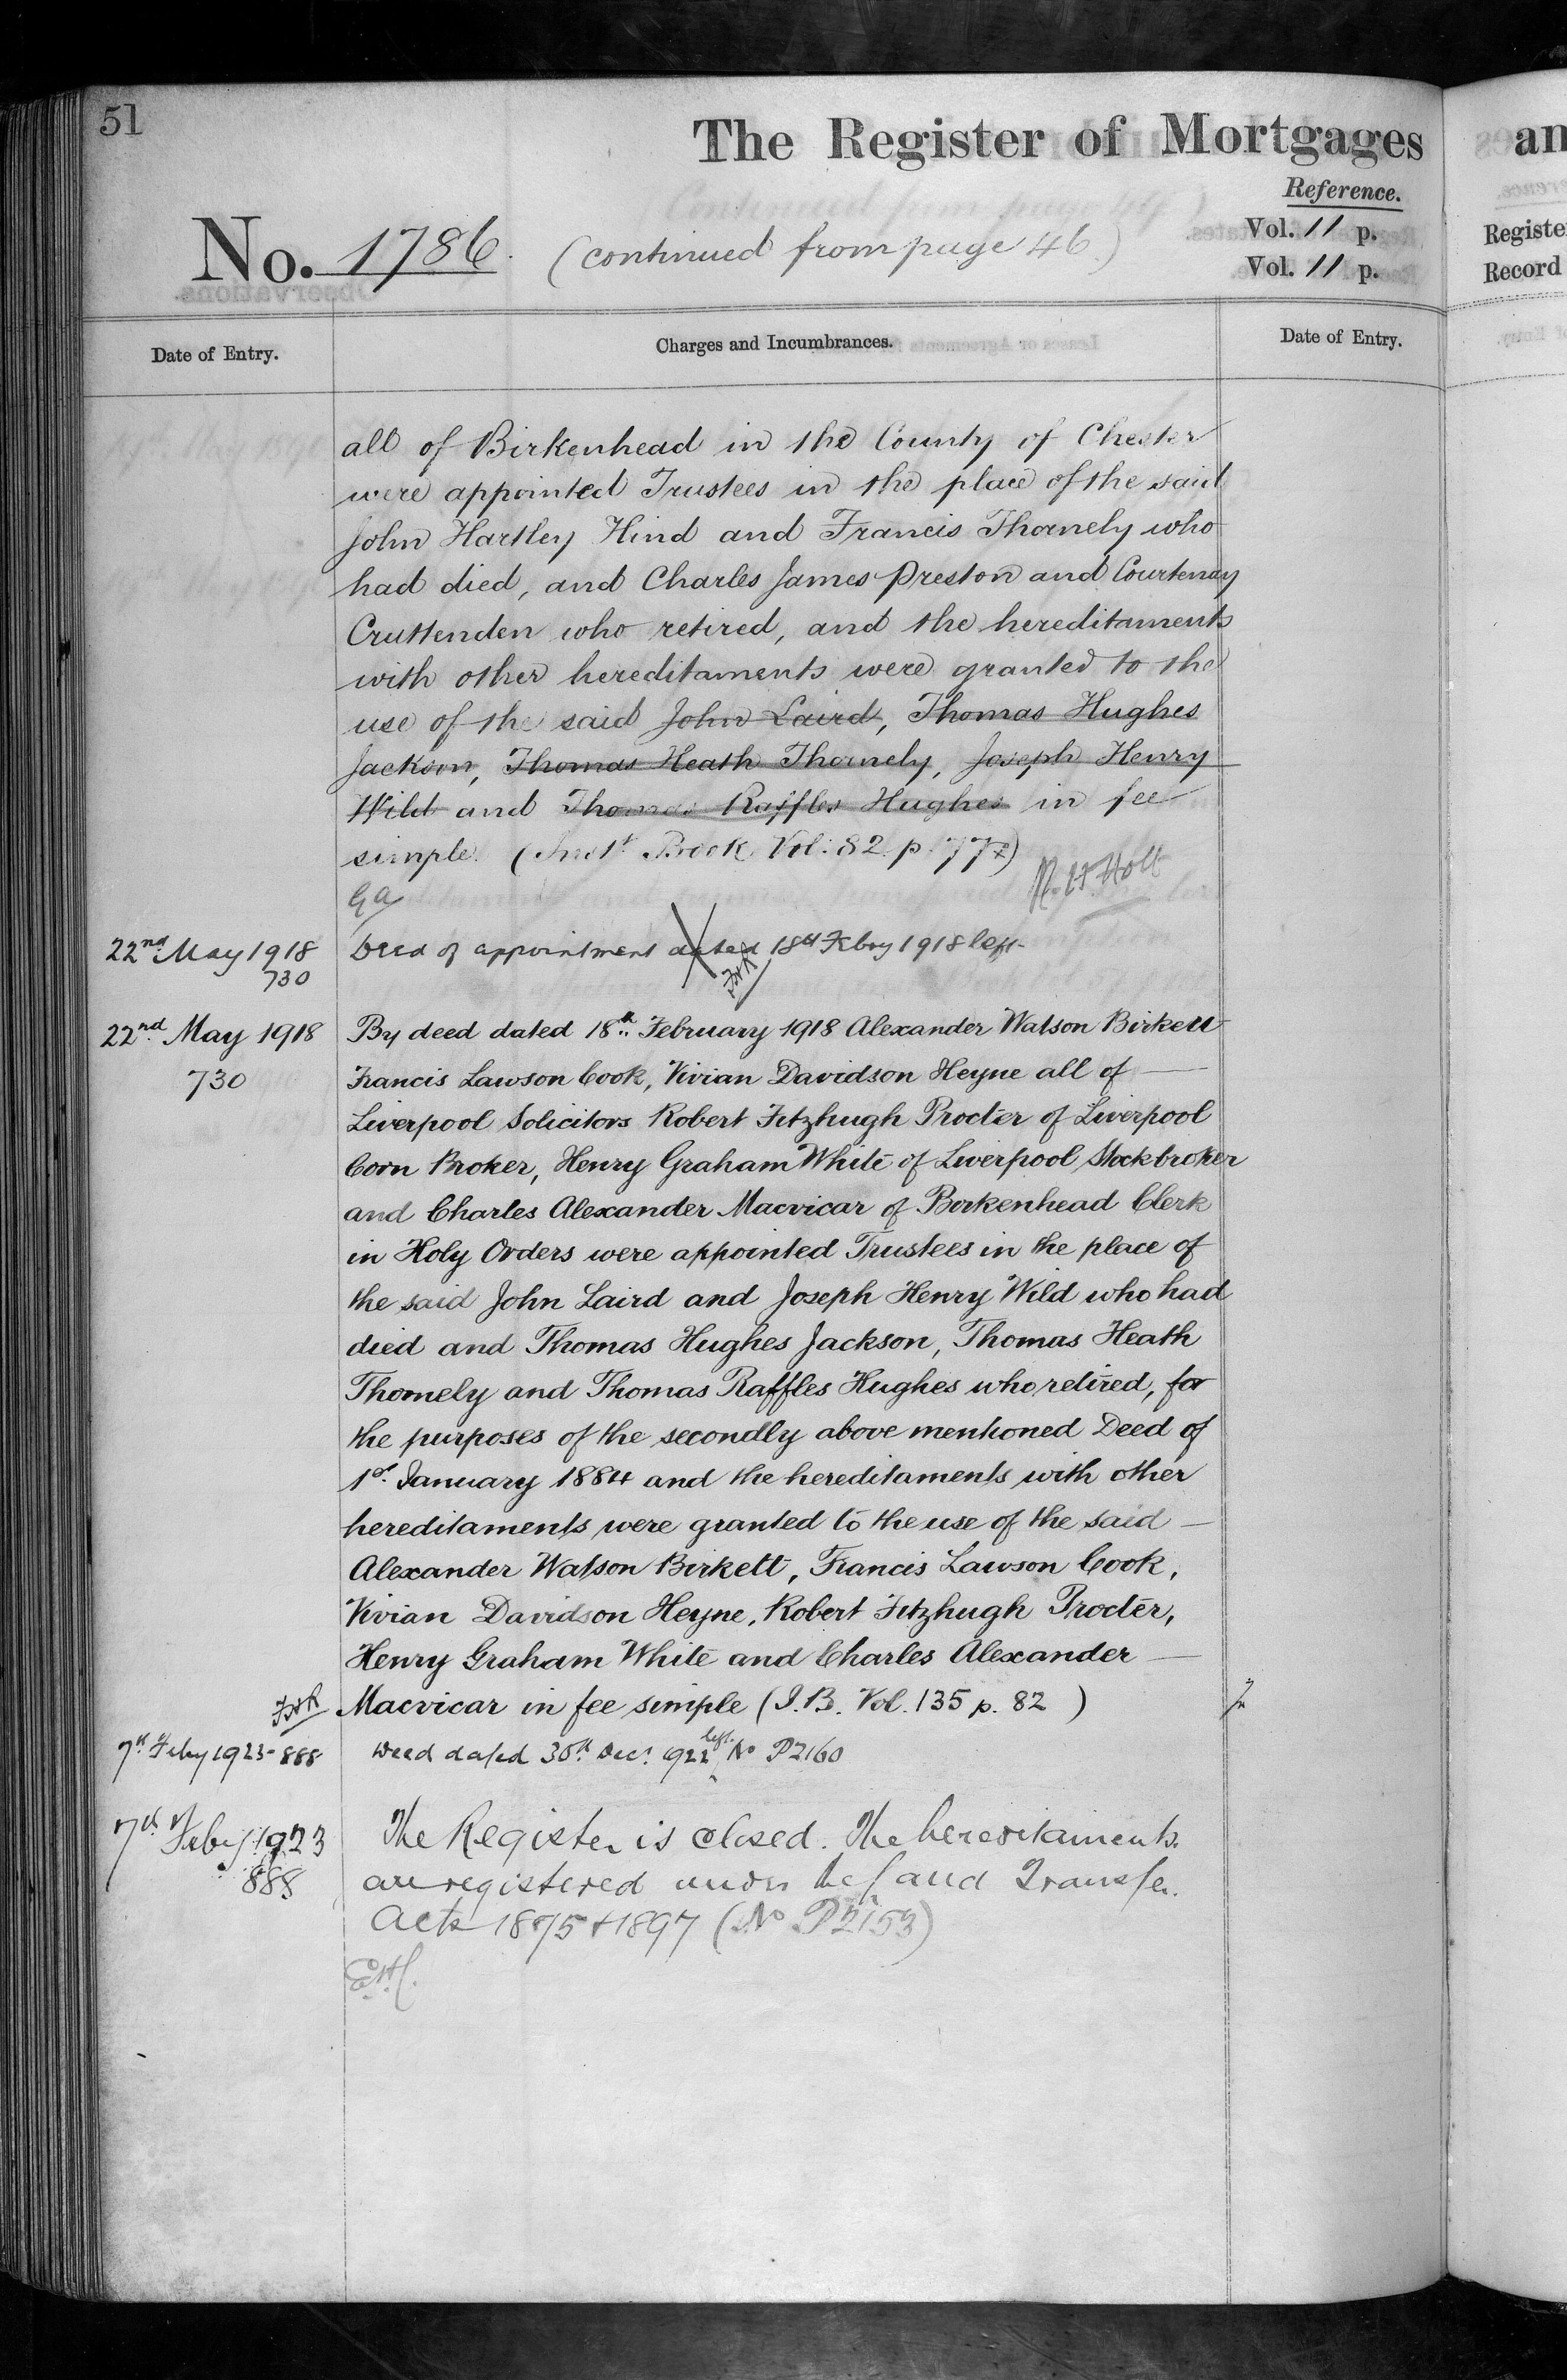 51
The Register of Mortgages
Reference.
No. 1786. (continued from page 46)
Vol. 11 p.
Vol. 11 p.
Date of Entry.
Charges and Incumbrances.
Date of Entry.
all of Birkenhead in the County of Chester
were appointed Trustees in the place of the said
John Hartley Hind and Francis Thornely who
had died, and Charles James Preston and Courtenay
Cruttenden who retired, and the hereditaments
with other hereditaments were granted to the
use of the said John Laird, Thomas Hughes
Jackson, Thomas Heath Thornely, Joseph Henry
Wild and Thomas Raffles Hughes in fee
simple. (Inst. Book Vol: 82 p. 77)
22nd May 1918
730
Deed of appointment dated 18th Febry 1918 left
22nd May 1918
730
By deed dated 18th February 1918 Alexander Watson Birkett
Francis Lawson Cook, Vivian Davidson Heyne all of
Liverpool Solicitors Robert Fitzhugh Procter of Liverpool
Corn Broker, Henry Graham White of Liverpool, Stockbroker
and Charles Alexander Macvicar of Birkenhead Clerk
in Holy Orders were appointed Trustees in the place of
the said John Laird and Joseph Henry Wild who had
died and Thomas Hughes Jackson, Thomas Heath
Thornely and Thomas Raffles Hughes who retired, for
the purposes of the secondly above mentioned Deed of
1st January 1884 and the hereditaments with other
hereditaments were granted to the use of the said
Alexander Watson Birkett, Francis Lawson Cook,
Vivian Davidson Heyne, Robert Fitzhugh Procter,
Henry Graham White and Charles Alexander
Macvicar in fee simple (I.B. Vol. 135 p. 82 )
7th Feby 1923 - 888
Deed dated 30th Decr. 1922 left No P2160
7th Feby 1923
888
The Register is closed. The hereditaments
are registered under the Land Transfer
Acts 1875 & 1897 (No P2153)
an
Registe
Record